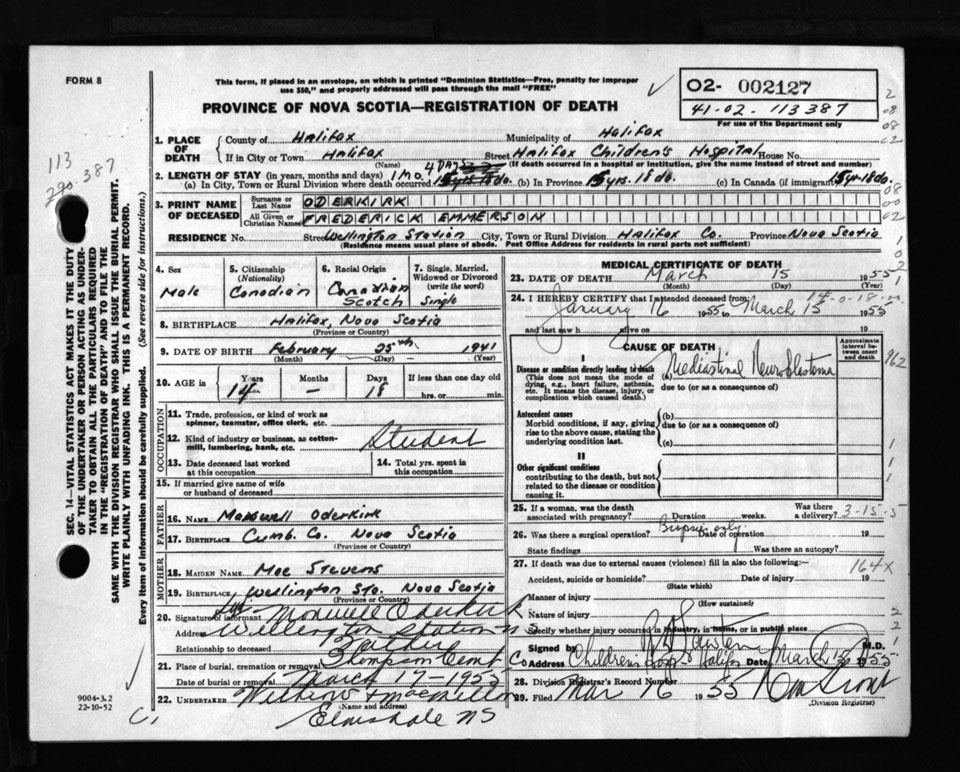 FORM 8
This form, if placed in an envelope, on which is printed "Dominion Statistics—Free, penalty for improper
use $50," and properly addressed will pass through the mail "FREE"
O2- 002127
41-02-113387
For use of the Department only
PROVINCE OF NOVA SCOTIA—REGISTRATION OF DEATH
113
387
SEC. 14—VITAL STATISTICS ACT MAKES IT THE DUTY
OF THE UNDERTAKER OR PERSON ACTING AS UNDER-
TAKER TO OBTAIN ALL THE PARTICULARS REQUIRED
IN THE "REGISTRATION OF DEATH" AND TO FILE THE
SAME WITH THE DIVISION REGISTRAR WHO SHALL ISSUE THE BURIAL PERMIT.
WRITE PLAINLY WITH UNFADING INK. THIS IS A PERMANENT RECORD.
Every item of information should be carefully supplied. (See reverse side for instructions.)
1. PLACE OF DEATH
County of Halifax Municipality of Halifax
If in City or Town Halifax (Name) Street Halifax Children's Hospital House No.
(If death occurred in a hospital or institution, give the name instead of street and number)
2. LENGTH OF STAY (in years, months and days) 1 mo. 4 Days
(a) In City, Town or Rural Division where death occurred (b) In Province 15 yrs. 18 do. (c) In Canada (if immigrant) 15 yr. 18 do.
3. PRINT NAME OF DECEASED
Surname or Last Name ODERKIRK
All Given or Christian Names FREDERICK EMMERSON
RESIDENCE No. Street Wellington Station City, Town or Rural Division Halifax Co. Province Nova Scotia
(Residence means usual place of abode. Post Office Address for residents in rural parts not sufficient)
4. Sex Male
5. Citizenship (Nationality) Canadian
6. Racial Origin Canadian Scotch
7. Single, Married, Widowed or Divorced (write the word) Single
8. BIRTHPLACE Halifax, Nova Scotia
(Province or Country)
9. DATE OF BIRTH February 25th 1941
(Month) (Day) (Year)
10. AGE in Years 14 Months - Days 18 If less than one day old hrs. or min.
OCCUPATION
11. Trade, profession, or kind of work as
spinner, teamster, office clerk, etc.
12. Kind of industry or business, as cotton-
mill, lumbering, bank, etc.
Student
13. Date deceased last worked
at this occupation
14. Total yrs. spent in
this occupation
15. If married give name of wife
or husband of deceased
FATHER
16. NAME Maxwell Oderkirk
17. BIRTHPLACE Cumb. Co. Nova Scotia
(Province or Country)
MOTHER
18. MAIDEN NAME Mae Stevens
19. BIRTHPLACE Wellington Sta. Nova Scotia
(Province or Country)
20. Signature of informant Oderkirk
Address Wellington Station N S
Relationship to deceased Father
21. Place of burial, cremation or removal Thompson Cemt
Date of burial or removal March 17-1955
22. UNDERTAKER
(Name and address)
Elmsdale NS
9004-3.2
22-10-52
MEDICAL CERTIFICATE OF DEATH
23. DATE OF DEATH March 15 1955
(Month) (Day)
24. I HEREBY CERTIFY that I attended deceased from:
14-0-18
January 16 1955 to March 15 1955
and last saw h alive on 19
I
CAUSE OF DEATH
Approximate interval between onset and death
Disease or condition directly leading to death
(This does not mean the mode of
dying, e.g., heart failure, asthenia,
etc. It means the disease, injury, or
complication which caused death.)
(a) Mediastinal Neuroblastoma
due to (or as a consequence of)
Antecedent causes
Morbid conditions, if any, giving
rise to the above cause, stating the
underlying condition last.
(b)
due to (or as a consequence of)
(c)
II
Other significant conditions
contributing to the death, but not
related to the disease or condition
causing it.
25. If a woman, was the death
associated with pregnancy? Duration weeks. Was there a delivery? 3-15-5
26. Was there a surgical operation? Biopsy only Date of operation 19
State findings Was there an autopsy?
27. If death was due to external causes (violence) fill in also the following:—
Accident, suicide or homicide? Date of injury 19
164X
(State which)
Manner of injury
(How sustained)
Nature of injury
Specify whether injury occurred in industry, in home, or in public place
Signed by M.D.
Address Children's Hosp Halifax Date March 15 1955
28. Division Registrar's Record Number
29. Filed Mar 16 1955
(Division Registrar)